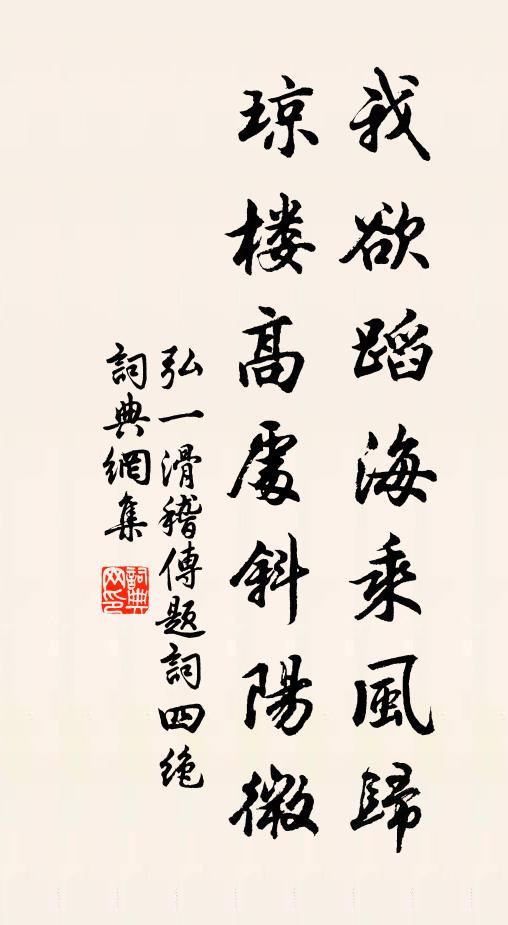 我欲蹈海乘風歸
琼楼高處斜陽微
弘一滑稽傳題詞四絶
詞典網集
詞典网印